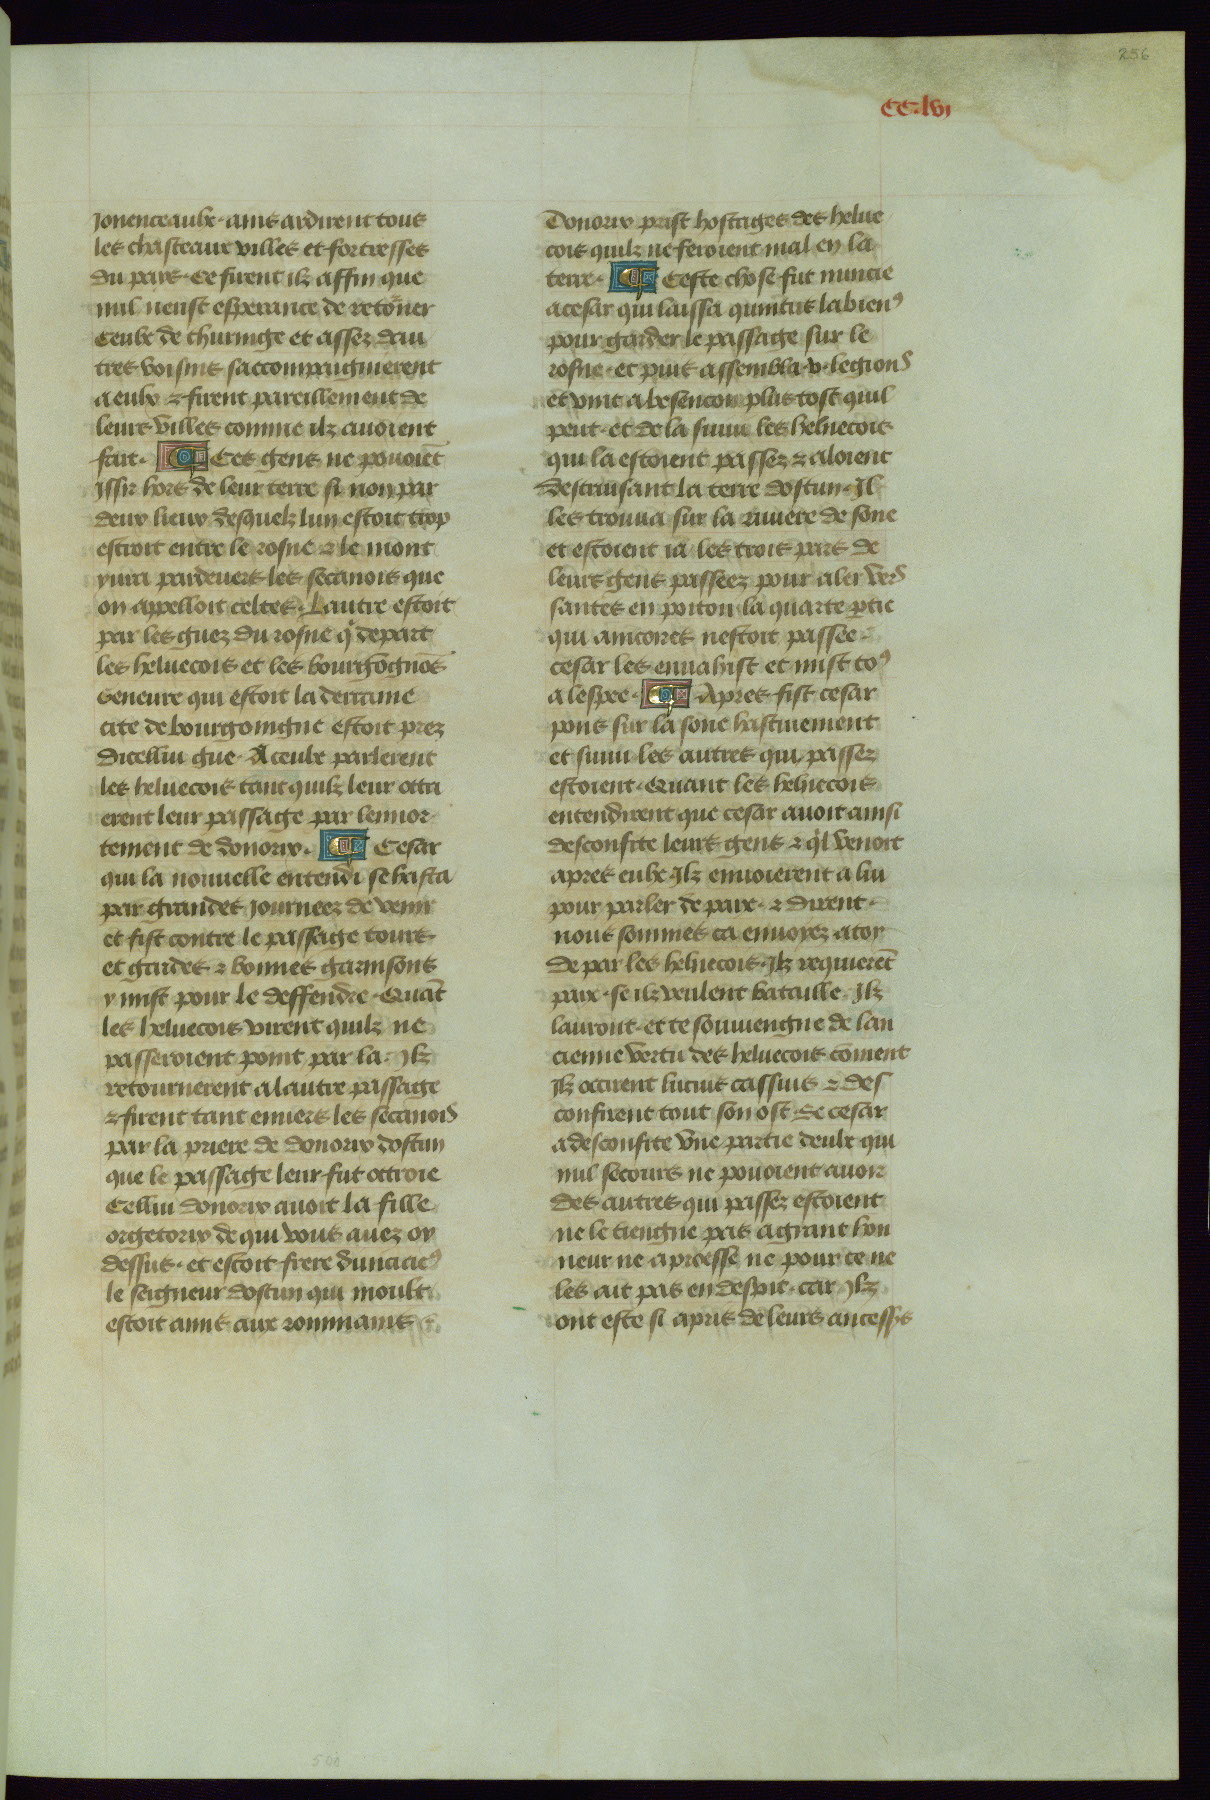 256
CC.lvj
Jonenceaulx. ains ardirent tous
les chasteaux villes et fortresses
du pais. Ce firent ilz affin que
nul neust esperance de reto͛ner
Ceulx de thuringe et assez dau
tres voisins saccompaignierent
a eulx ⁊ firent pareillement de
leurs villes comme ilz auoient
fait. ¶ Ces gens ne pouoie͞t
Jssir hors de leur terre si non par
deux lieux desquelz lun estoit trop
estroit entre le rosne ⁊ le mont
yura pardeuers les secanois que
on appelloit celtes. Lautre estoit
par les guez du rosne qͥ depart
les heluecois et les bourgogno͞s
Geneure qui estoit la derraine
cite de bourgoingne estoit prez
dicellui gue. A ceulx parlerent
les heluecois tant quilz leur ottri
erent leur passage par lennor
tement de donorix. ¶ Cesar
qui la nouuelle entendi se hasta
par grandes journeez de venir
et fist contre le passage tours
et gardes ⁊ bonnes garnisons
y mist pour le deffendre. Qua͞t
les heluecois virent quilz ne
passeroient point par la. Jlz
retournerent a lautre passage
⁊ firent tant enuers les secanois
par la priere de donorix dostun
que le passage leur fut ottroie
Cellui donorix auoit la fille
orgetorix de qui vous auez oy
dessus. et estoit frere duniciecꝰ
le seigneur dostun qui moult
estoit amis aux rommains
Donorix prist hostages des helue
cois quilz ne feroient mal en la
terre. ¶ Ceste chose fut nuncie
a cesar qui laissa quintus labienꝰ
pour garder le passage sur le
rosne. et puis assembla .v. legions
et vint a besencon plus tost quil
peut. et de la suiui les heluecois
qui la estoient passez ⁊ aloient
destruisant la terre dostun. Jl
les trouua sur la riuiere de sone
et estoient ia les trois pars de
leurs gens passeez pour aler vers
santes en poitou la quarte ꝑtie
qui ancores nestoit passee.
cesar les enuahist et mist toꝰ
a lespee. ¶ Apres fist cesar
pons sur la sone hastiuement
et suiui les autres qui passez
estoient. Quant les heluecois
entendirent que cesar auoit ainsi
desconfite leurs gens ⁊ qͥl venoit
apres eulx Jlz enuoierent a lui
pour parler de paix. ⁊ dirent.
nous sommes ca enuoyez a toy
de par les heluecois. Jlz requiere͞t
paix. se ilz veulent bataille Jlz
lauront. et te souuiengne de lan
cienne vertu des heluecois co͞ment
Jlz occirent lucius cassius ⁊ des
confirent tout son ost. Se cesar
a desconfite vne partie deulx qui
nul secours ne pouoient auoir
des autres qui passez estoient
ne le tiengne pas a grant hon
neur ne a proesse ne pour ce ne
les ait pas en despit. car Jlz
ont este si apris de leurs ancess͛s
500